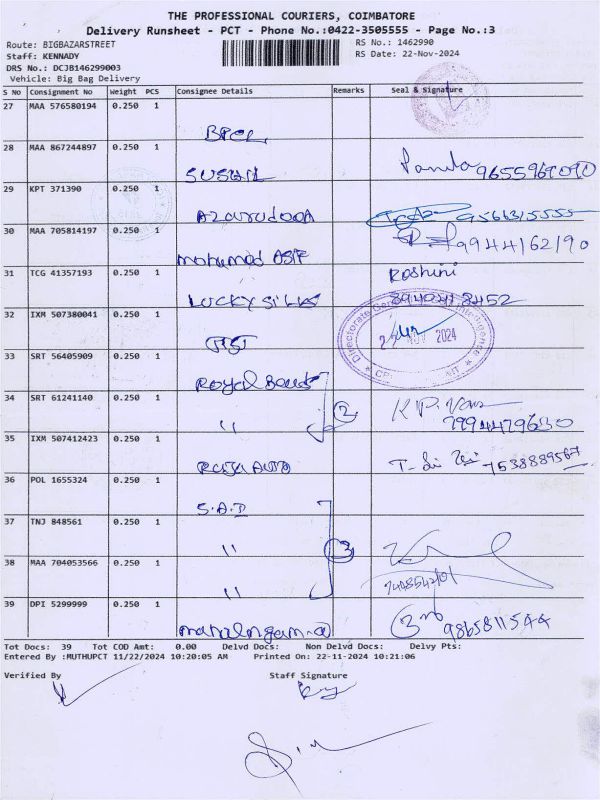 THE PROFESSIONAL COURIERS, COIMBATORE
Delivery Runsheet - PCT - Phone No.:0422-3505555 - Page No.:3
Route: BIGBAZARSTREET
RS No.: 1462990
Staff: KENNADY
RS Date: 22-Nov-2024
DRS No.: DCJB146299003
Vehicle: Big Bag Delivery
S No Consignment No Weight PCS Consignee Details Remarks Seal & Signature
27 MAA 576580194 0.250 1
BPCL
28 MAA 867244897 0.250 1
SUSHIL 9655969090
29 KPT 371390 0.250 1
Azarudeen 9566315555
30 MAA 705814197 0.250 1
mohamed ASIF 9944162190
31 TCG 41357193 0.250 1 Roshini
LUCKY SILKS 8940418452
32 IXM 507380041 0.250 1
NOV 2024
33 SRT 56405909 0.250 1
Royal
34 SRT 61241140 0.250 1
" 2 7994479630
35 IXM 507412423 0.250 1
RAJA AUTO 7538889567
36 POL 1655324 0.250 1
S.A.D
37 TNJ 848561 0.250 1
" 3
38 MAA 704053566 0.250 1
"
39 DPI 5299999 0.250 1
9865811544
Tot Docs: 39 Tot COD Amt: 0.00 Delvd Docs: Non Delvd Docs: Delvy Pts:
Entered By :MUTHUPCT 11/22/2024 10:20:05 AM Printed On: 22-11-2024 10:21:06
Verified By Staff Signature